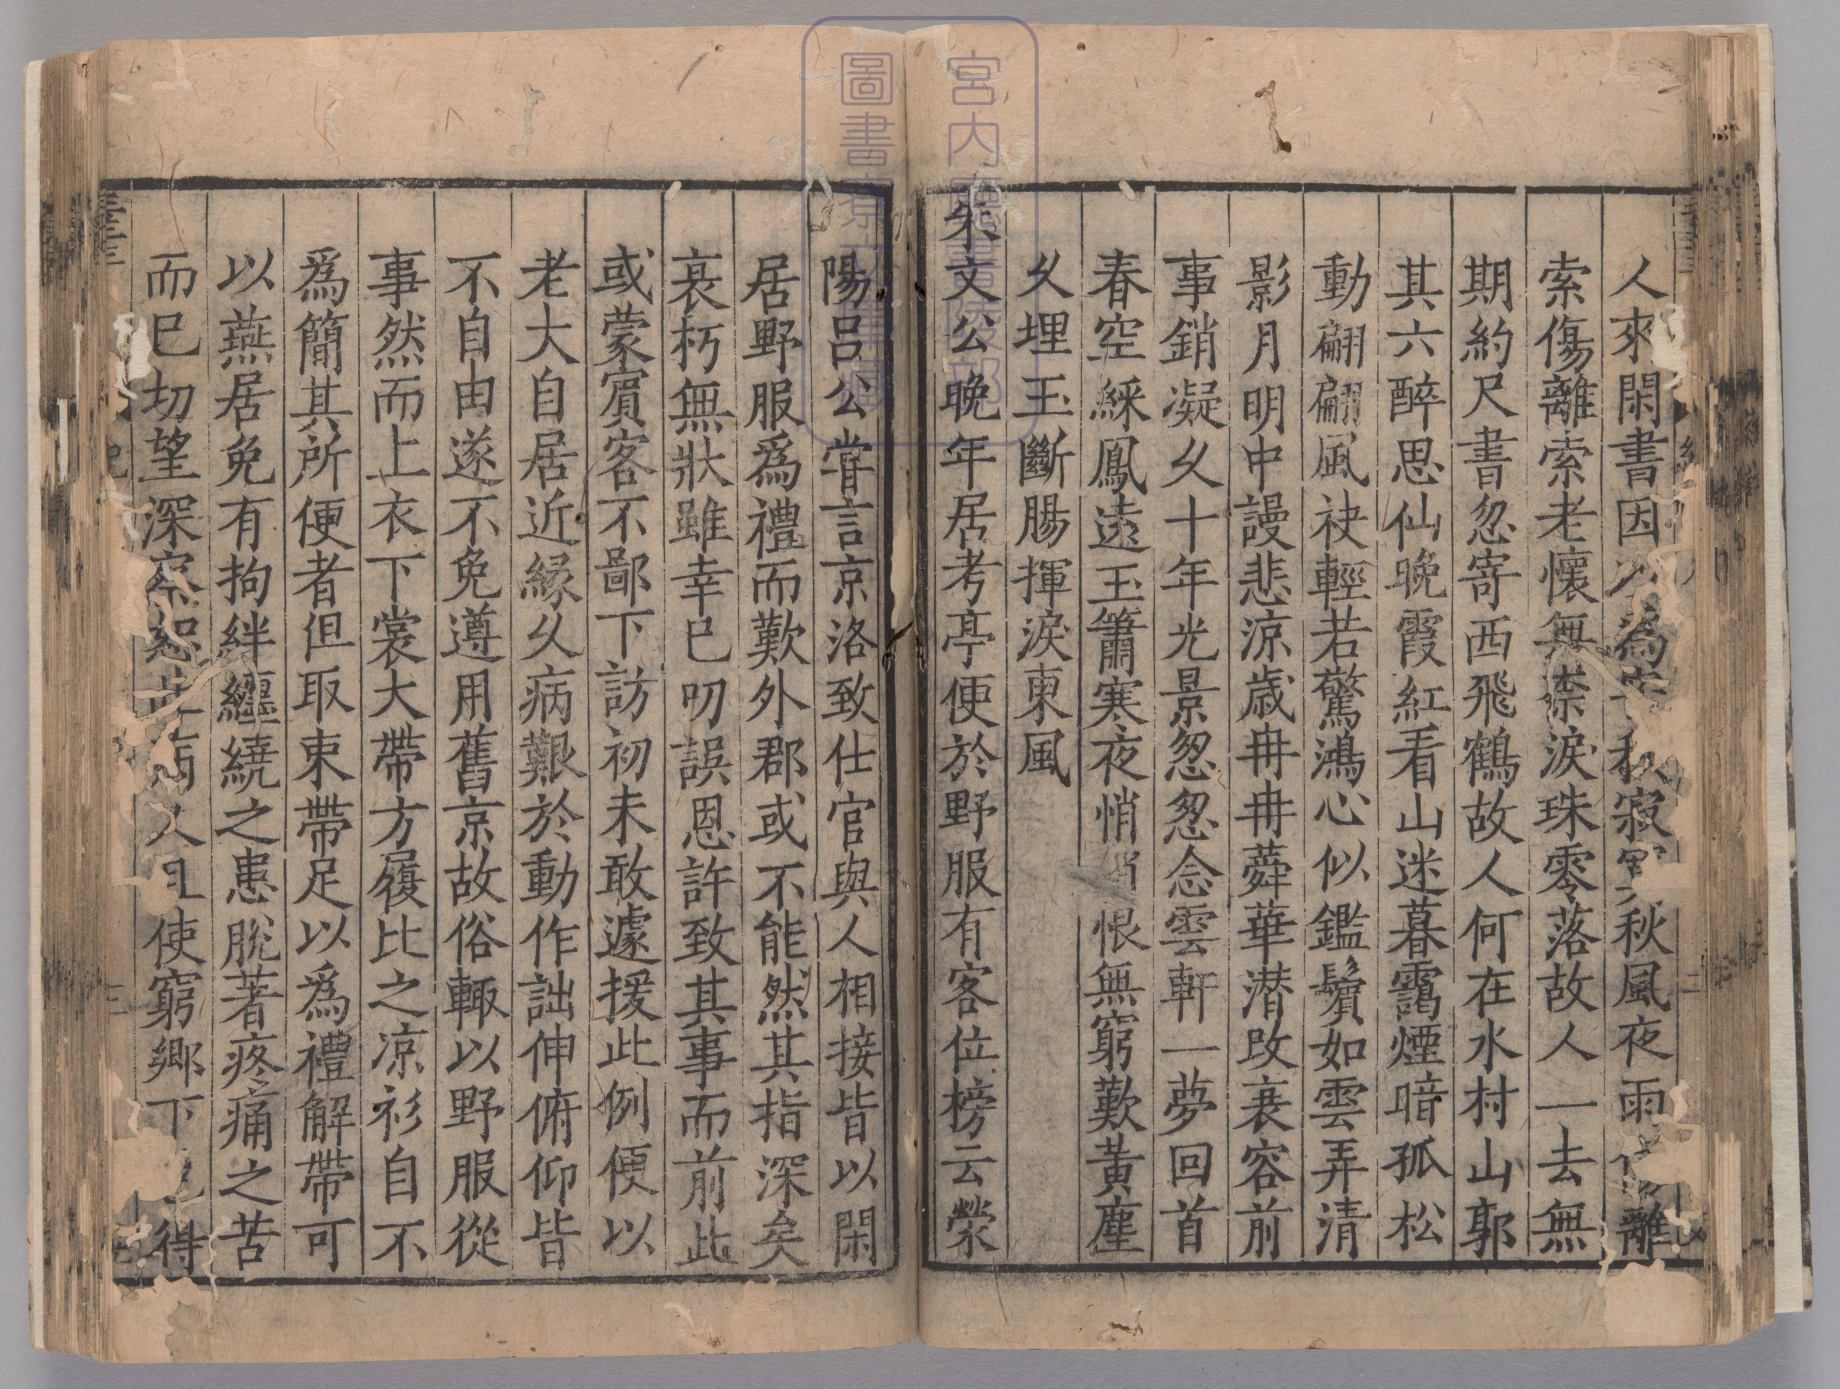 人來閑書因
秋寂
秋風夜雨
離
索傷離索老懷無禁淚珠零落故人一去無
期約尺書忽寄西飛鶴故人何在水村山郭
其六醉思仙晩霞紅看山迷暮靄煙暗孤松
動翩翩風袂輕若驚鴻心似鑑鬢如雲弄清
影月明中謾悲涼歲冉冉蕣華潜改衰容前
事銷凝久十年光景怱怱念雲軒一夢回首
春空綵鳳遠玉簫寒夜悄
恨無窮歎黃塵
久埋玉斷腸揮淚東風
朱文公晩年居考亭便於野服有客位榜云滎
陽呂公甞言京洛致仕官與人相接皆以閑
居野服爲禮而歎外郡或不能然其指深矣
衰朽無狀雖幸已叨誤恩許致其事而前此
或蒙賓客不鄙下訪初未敢遽援此例便以
老大自居近緣久病艱於動作詘伸俯仰皆
不自由遂不免遵用舊京故俗輒以野服從
事然而上衣下裳大帶方履比之凉衫自不
爲簡其所便者但取束帶足以爲禮解帶可
以燕居免有拘絆纏繞之患脫著疼痛之苦
而已切望深察恕此病人且使窮鄉下
得
宮内廳書陵部
圖書寮文庫